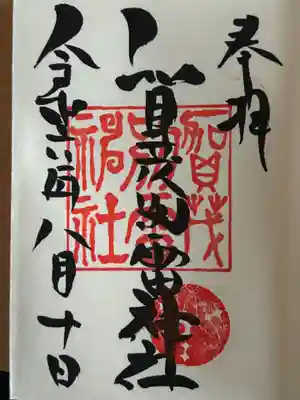 奉拝
賀茂別雷神社
令和 年八月十日
賀茂
別雷
神社